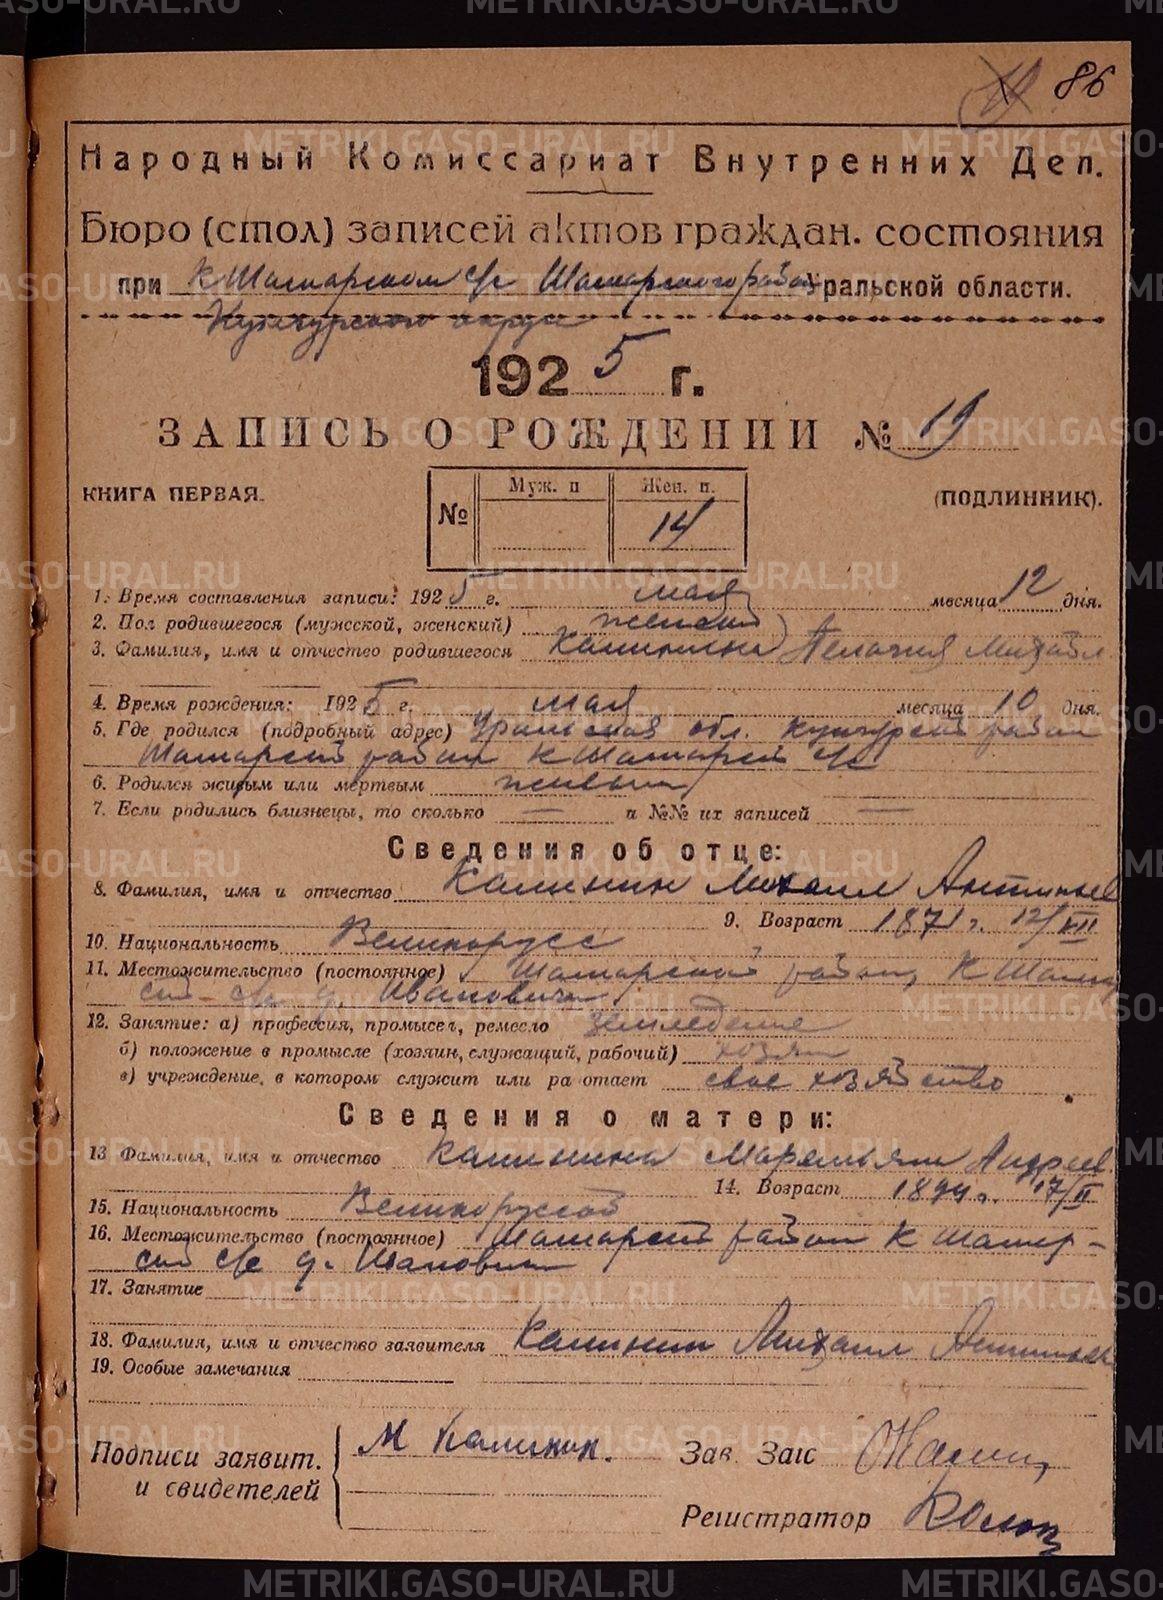 86
Народный Комиссариат Внутренних Дел.
Бюро (стол) записей актов граждан. состояния
при К Шамарском с/с Шамарского района Уральской области.
Кунгурского округа
1925 г.
ЗАПИСЬ О РОЖДЕНИИ № 19
КНИГА ПЕРВАЯ.
№ Муж. п Жен. п.
14
(ПОДЛИННИК).
1. Время составления записи: 1925 г. мая месяца 12 дня.
2. Пол родившегося (мужской, женский) женский
3. Фамилия, имя и отчество родившегося Калинина Пелагия Михайл
4. Время рождения: 1925 г. мая месяца 10 дня.
5. Где родился (подробный адрес) Уральская обл. Кунгурский район
Шамарский район К Шамарский с/с
6. Родился живым или мертвым живым
7. Если родились близнецы, то сколько — и №№ их записей —
Сведения об отце:
8. Фамилия, имя и отчество Калинин Михаил Антипьев
9. Возраст 1871 г. 12/VII
10. Национальность Великорусс
11. Местожительство (постоянное) Шамарский район К Шамар
ский с/с д.
12. Занятие: а) профессия, промысел, ремесло земледелие
б) положение в промысле (хозяин, служащий, рабочий) хозяин
в) учреждение, в котором служит или ра отает свое хозяйство
Сведения о матери:
13 Фамилия, имя и отчество Калинина Маремьян Андреев
14. Возраст 17/II
15. Национальность Великорусской
16. Местожительство (постоянное) Шамарский район К Шамар-
ский с/с д.
17. Занятие
18. Фамилия, имя и отчество заявителя Калинин Михаил Антипьев
19. Особые замечания
Подписи заявит. М Калинин. Зав. Загс
и свидетелей
Регистратор
METRIKI.GASO-URAL.RU